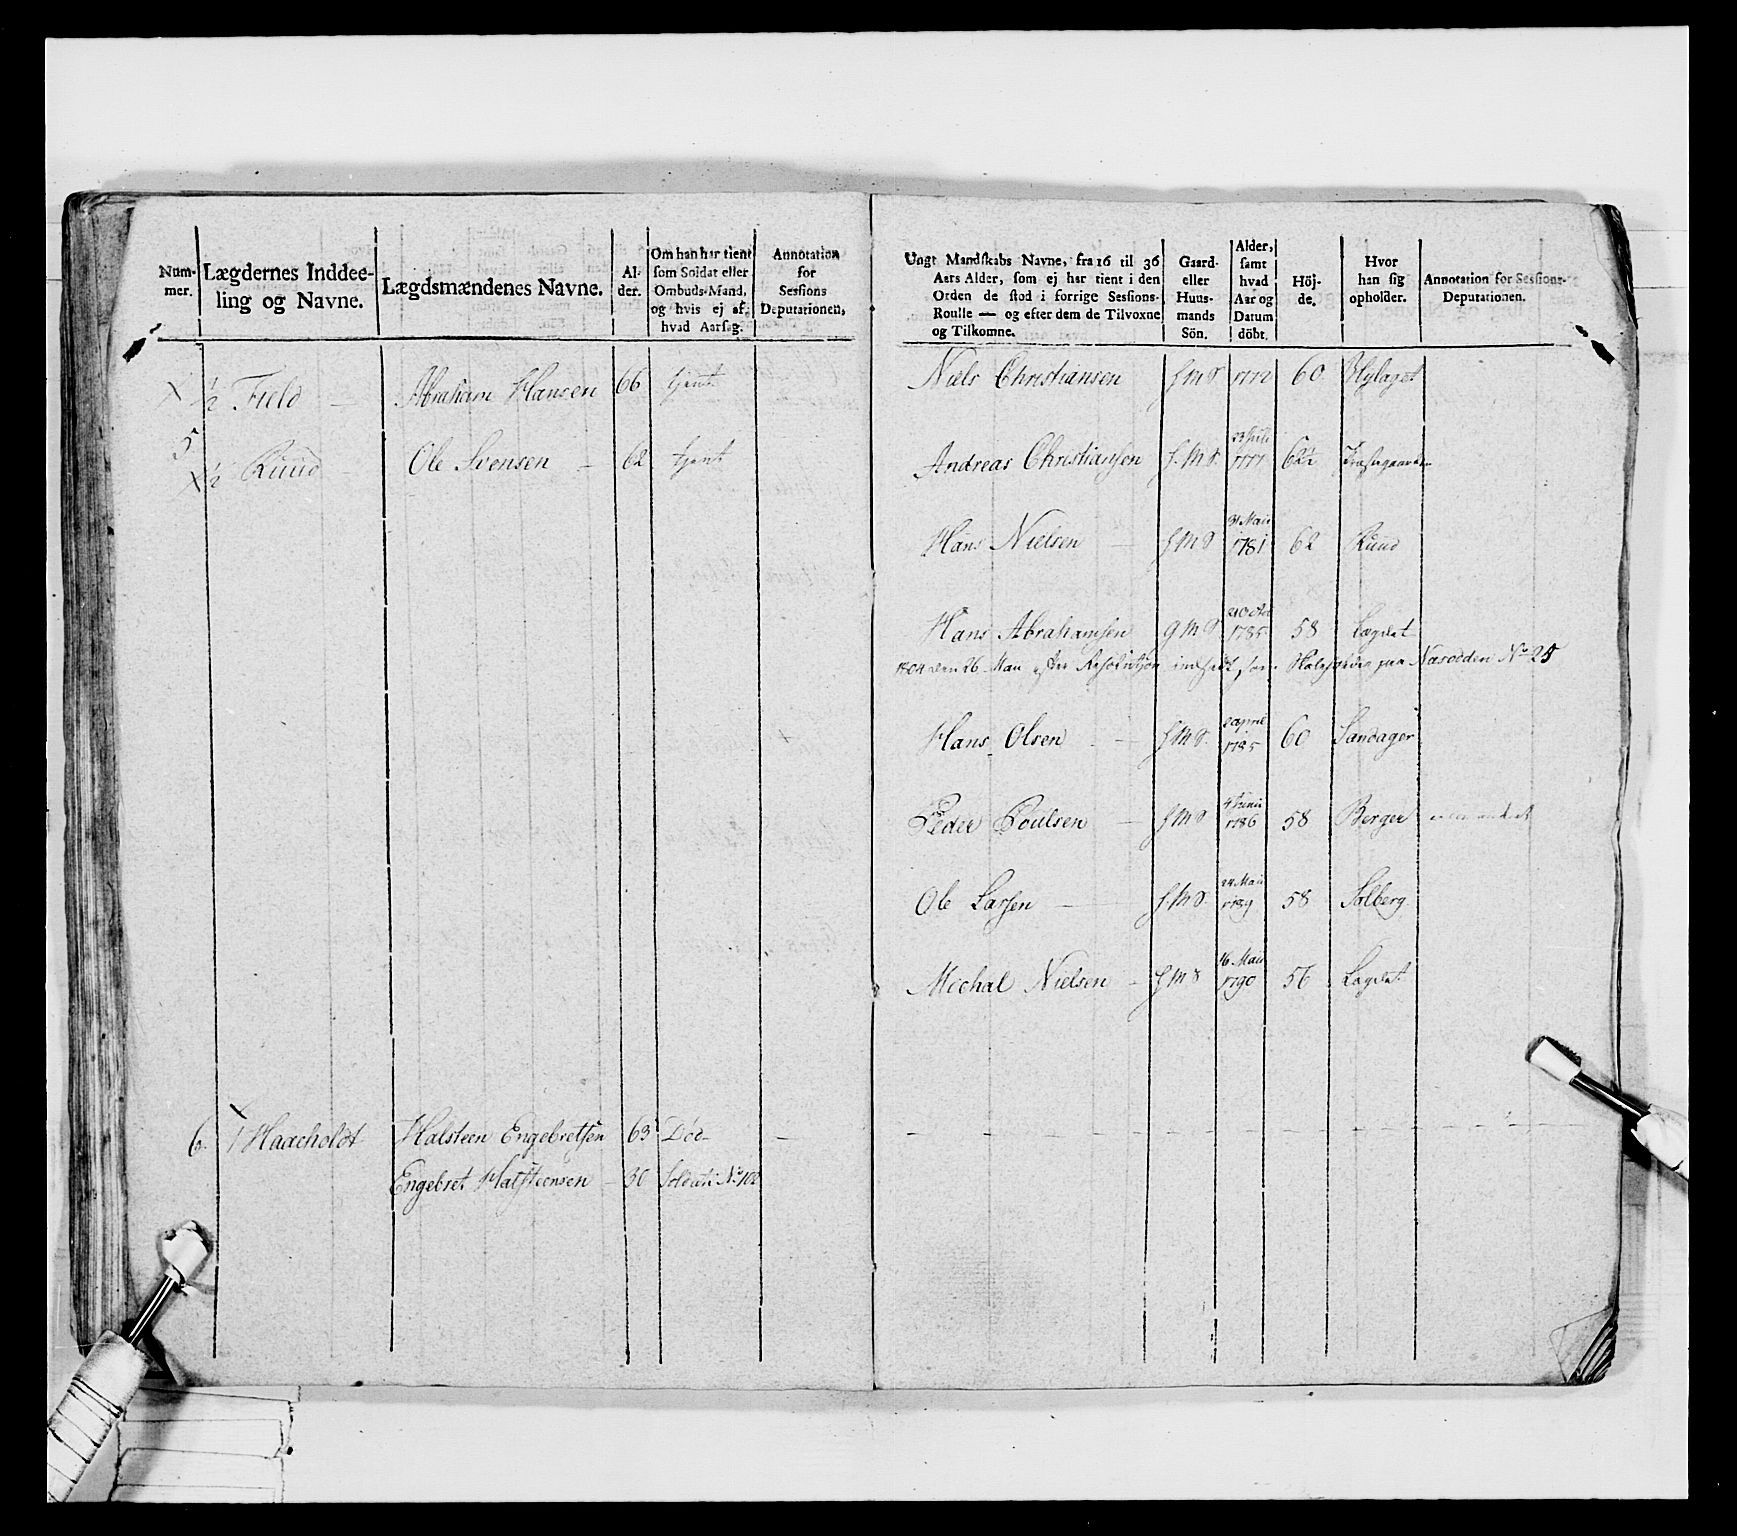 Num-
mer.
Lægdernes Inddee-
ling og Navne.
Lægdsmændenes Navne.
Al-
der.
Om han har tient
som Soldat eller
Ombuds-Mand,
og hvis ej af
hvad Aarsag.
Annotation
for
Sessions
Deputationen,
5 ½ Field Abraham Hansen 66 tjent
½ Ruud Ole Svensen 62 tjent
6. 1 Haacholdt Halsteen Engebretsen 63 Död
Engebret Halsteensen 30 Soldat No 102
Ungt Mandskabs Navne, fra 16 til 36
Aars Alder, som ej har tient i den
Orden de stod i forrige Sessions-
Roulle — og efter dem de Tilvoxne
og Tilkomne.
Gaard-
eller
Huus-
mands
Sön.
Alder,
samt
hvad
Aar og
Datum
döbt.
Höj-
de.
Hvor
han sig
opholder.
Annotation for Sessions-
Deputationen.
Niels Christiansen H M S 1772 60
23 Juli
Andreas Christiansen H. M S. 1777 62½
31 Maii
Hans Nielsen H M S 1781 62 Ruud
Hans Abrahamsen G M S 1785 58 Lægdet
1804 den 26 Maii efter Resolution Nesodden No 25
2 April
Hans Olsen H M S. 1785 60 Sandager
4 Junii
Peder Poulsen H M S 1786 58 Berger
24 Maii
Ole Larsen H. M S. 1789 58 Solberg
16 Maii
Mechal Nielsen H M S 1790 56 Lægdet